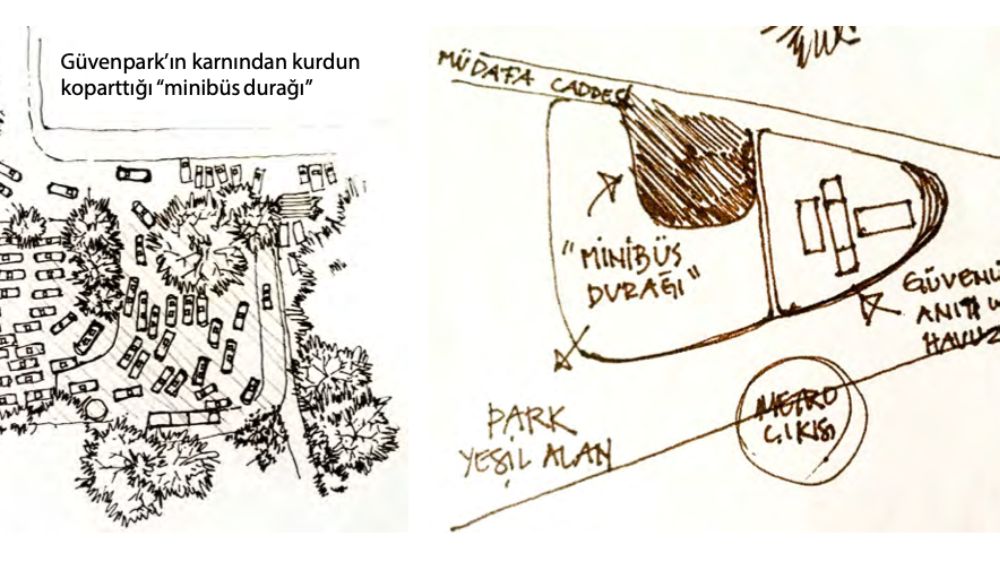 Güvenpark’ın karnından kurdun
koparttığı “minibüs durağı”
MÜDAFA CADDESİ
"MİNİBÜS
DURAĞI"
GÜVENLİ
ANITI
HAVUZ
PARK
YEŞİL ALAN
METRO
ÇIKIŞI